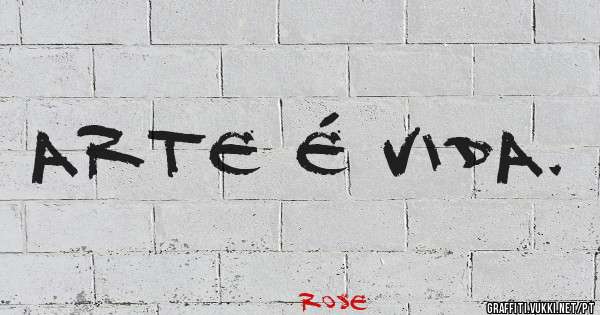 ARTE É VIDA.
ROSE
GRAFFITI.VUKKI.NET/PT